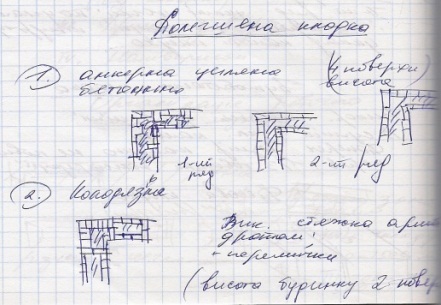 Полегшена кладка
1. анкерна цегляна (4 поверхи
бетонна висота
1-ий
ряд
2-ий ряд
2. Колодязна
Вик. стяжка арма
дротом!
+ перемички
(висота будинку 2 повер